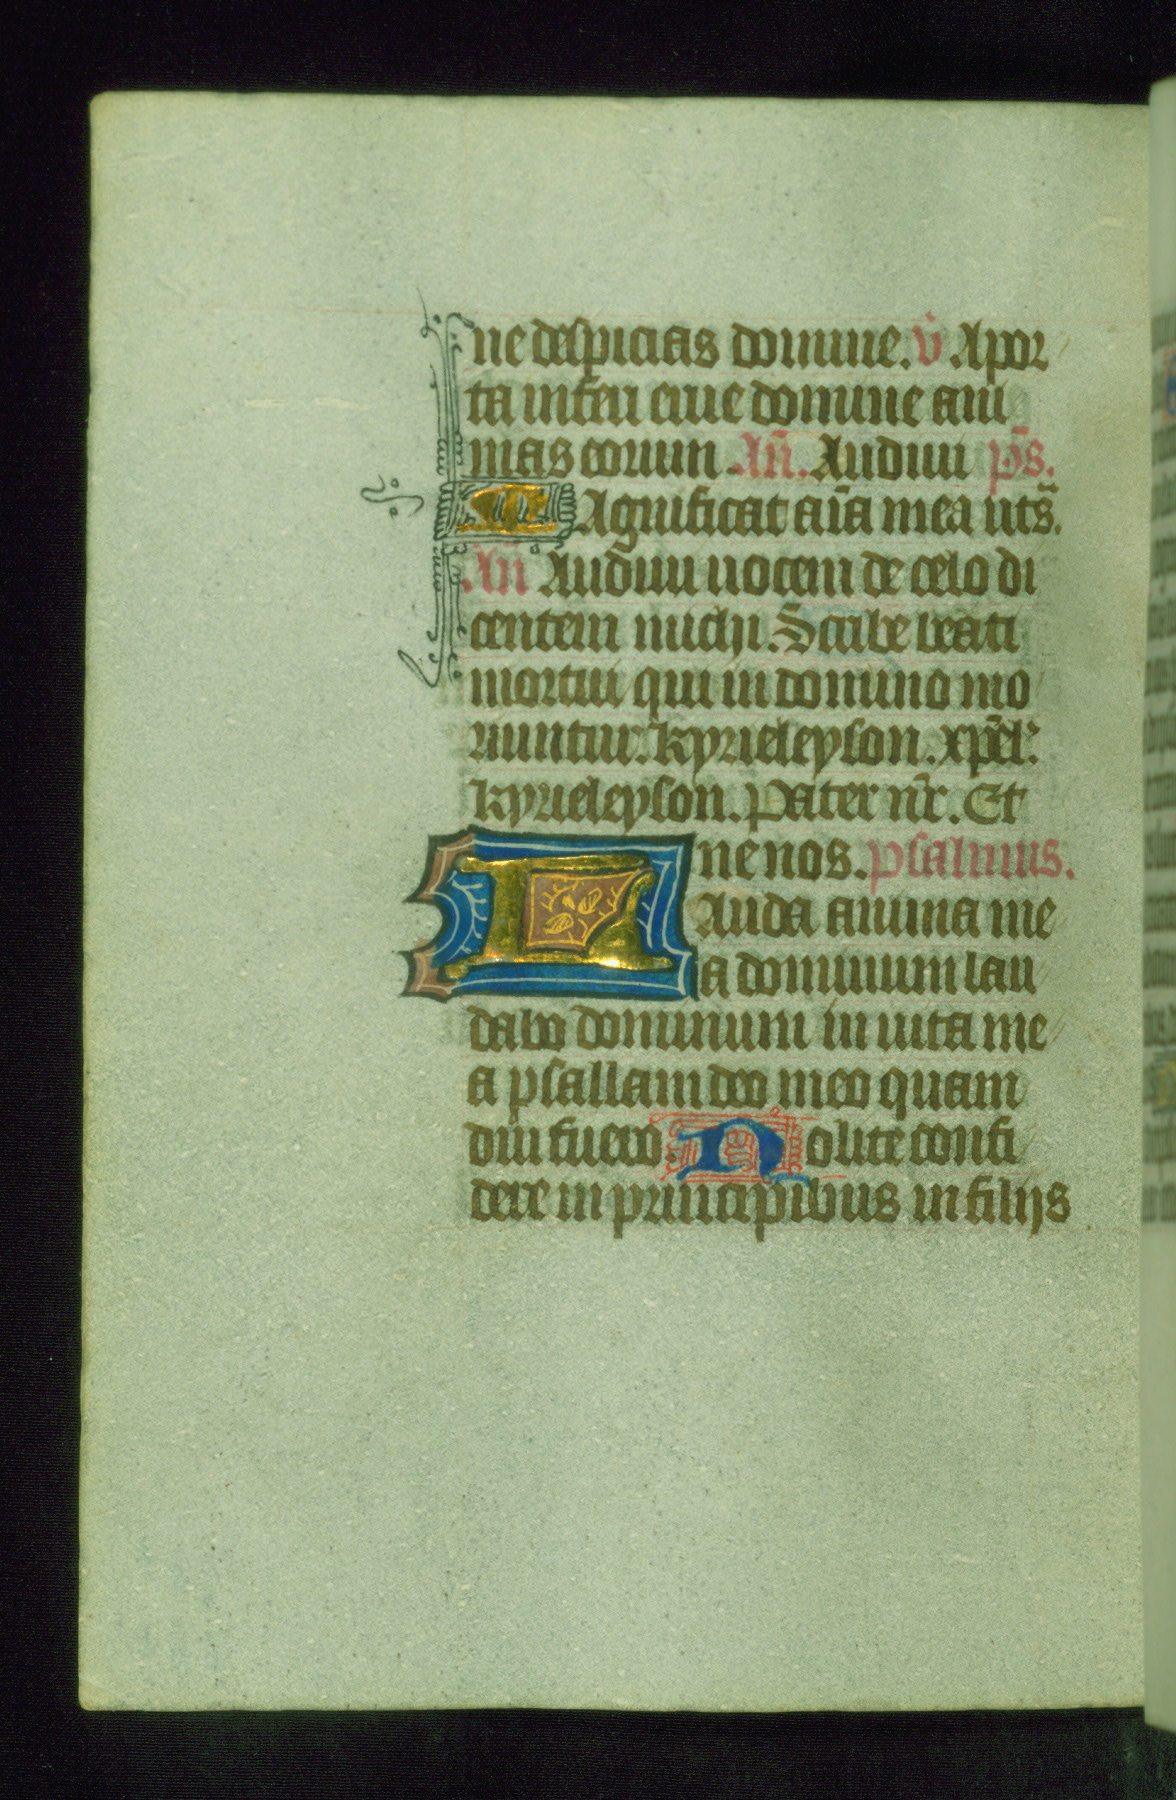 ne despicias domine. v̄ A por
ta inferi erue domine ani
mas eorum. Añ. Audiui p̄s.
MAgnificat aīa mea uts̄.
Añ Audiui uocem de celo di
centem michi. Scribe beati
mortui qui in domino mo
riuntur. kyrieleyson. xp̄el'.
kyrieleyson. Pater nr̄. Et
ne nos. psalmus.
LAuda anima me
a dominum lau
dabo dominum in uita me
a psallam deo meo quam
diu fuero. Nolite confi
dere in principibus in filijs